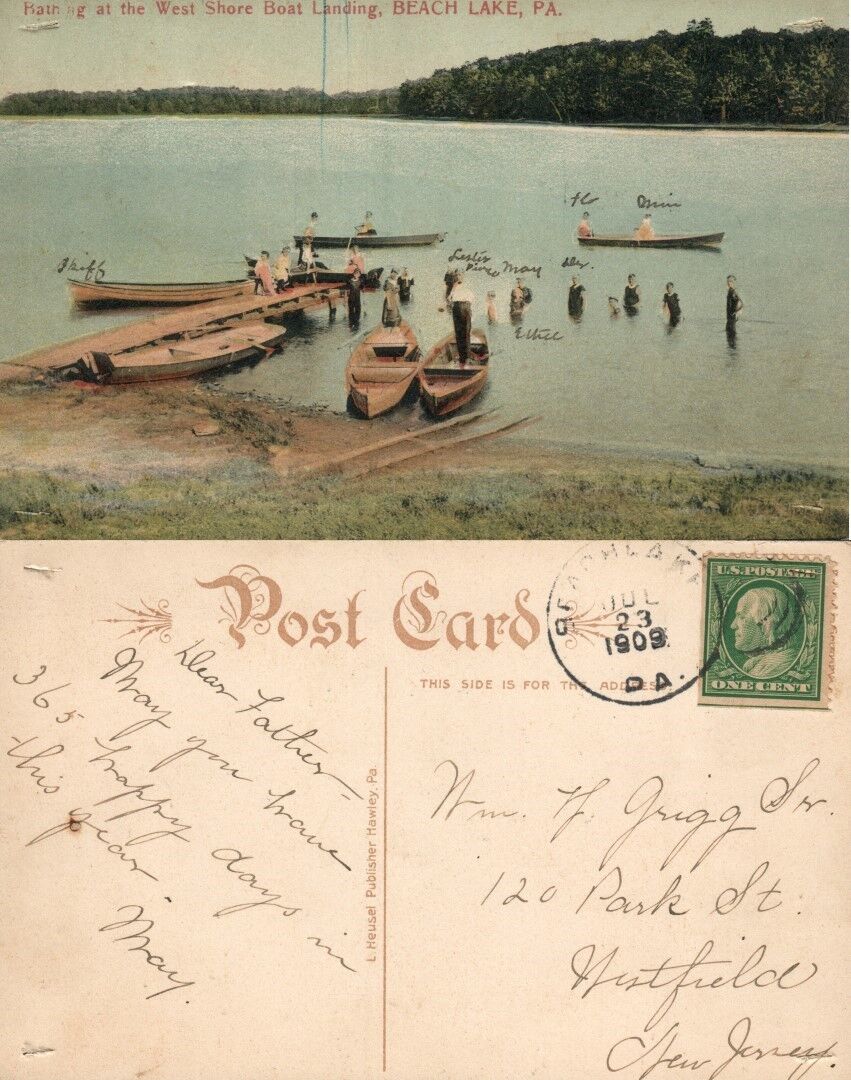 Bathing at the West Shore Boat Landing, BEACH LAKE, PA.
Flo
Skiff
Lester
May
Ethel
Post Card
BEACHLAKE
JUL
23
1909
PA.
U.S. POSTAGE
ONE CENT
THIS SIDE IS FOR THE ADDRESS.
Dear Father-
May you have
365 happy days in
this year.
May.
L. Heusel Publisher Hawley, Pa.
Wm. H. Grigg Sr.
120 Park St.
Westfield
New Jersey.